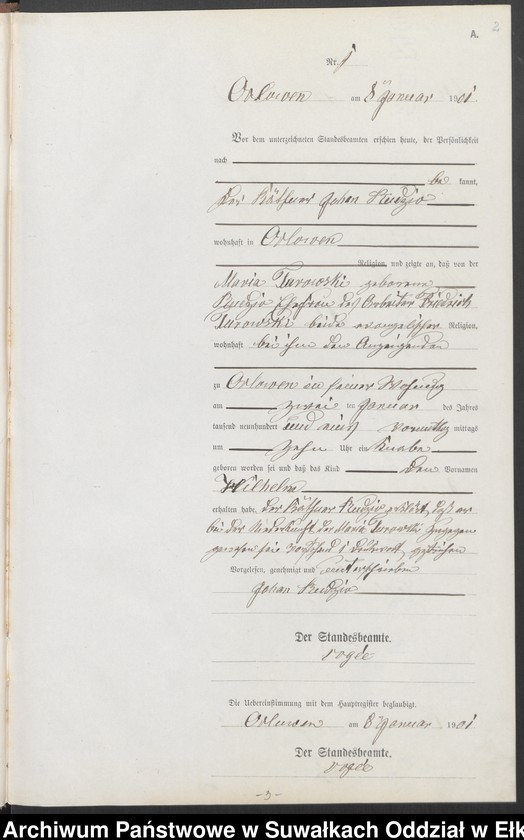 2
A.
Nr. 1
Orlowen am 8 Januar 1901
Vor dem unterzeichneten Standesbeamten erschien heute, der Persönlichkeit
nach
be kannt,
der Käthner Johan
wohnhaft in Orlowen
Religion, und zeigte an, daß von der
Maria Turowski geborene
Ehefrau des Arbeiter Friedrich
Turowski beide evangelischer Religion,
wohnhaft bei ihm dem Anzeigenden
zu Orlowen in seiner Wohnung
am zwei ten Januar des Jahres
tausend neunhundert und eins vormittags mittags
um zehn Uhr ein Knabe
geboren worden sei und daß das Kind den Vornamen
Wilhelm
erhalten habe. Der Käthner erklärt, daß er
bei der Niederkunft der Maria Turowski zugegen
gewesen sei. Vorstehend gestrichen
Vorgelesen, genehmigt und unterschrieben
Johan
Der Standesbeamte.
Die Uebereinstimmung mit dem Hauptregister beglaubigt.
Orlowen am 8 Januar 1901
Der Standesbeamte.
Archiwum Państwowe w Suwałkach Oddział w Ełk